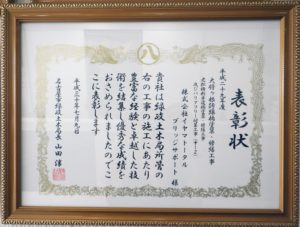 八
表彰状
平成二十九年度
株式会社イヤマトータル
ブリッジサポート 様
貴社は緑政土木局所管の
右の工事の施工にあたり
豊富な経験と卓越した技
術を結集し優秀な成績を
おさめられましたのでこ
こに表彰します
平成三十年七月九日
名古屋市緑政土木局長 山田 淳